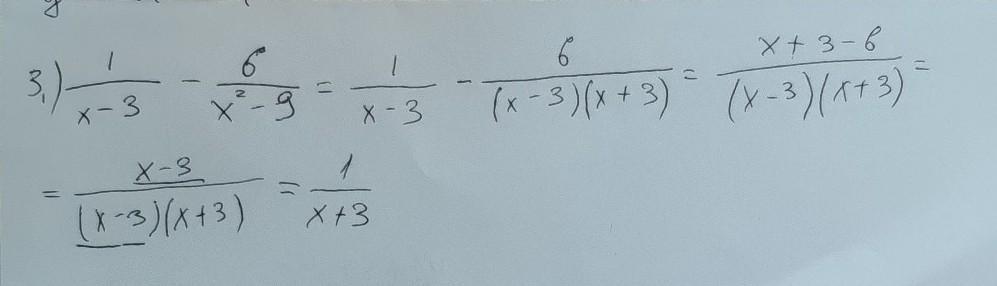 3.) 1/(x-3) - 6/(x²-9) = 1/(x-3) - 6/((x-3)(x+3)) = (x+3-6)/((x-3)(x+3)) =
= (x-3)/((x-3)(x+3)) = 1/(x+3)